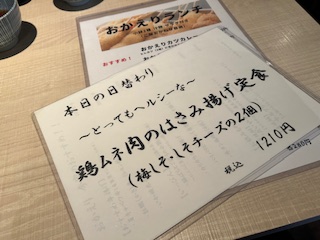 おかえりランチ
おすすめ！
おかえりカツカレー
本日の日替わり
〜とってもヘルシーな〜
鶏ムネ肉のはさみ揚げ定食
（梅しそ・しそチーズの2個）
税込 1210円